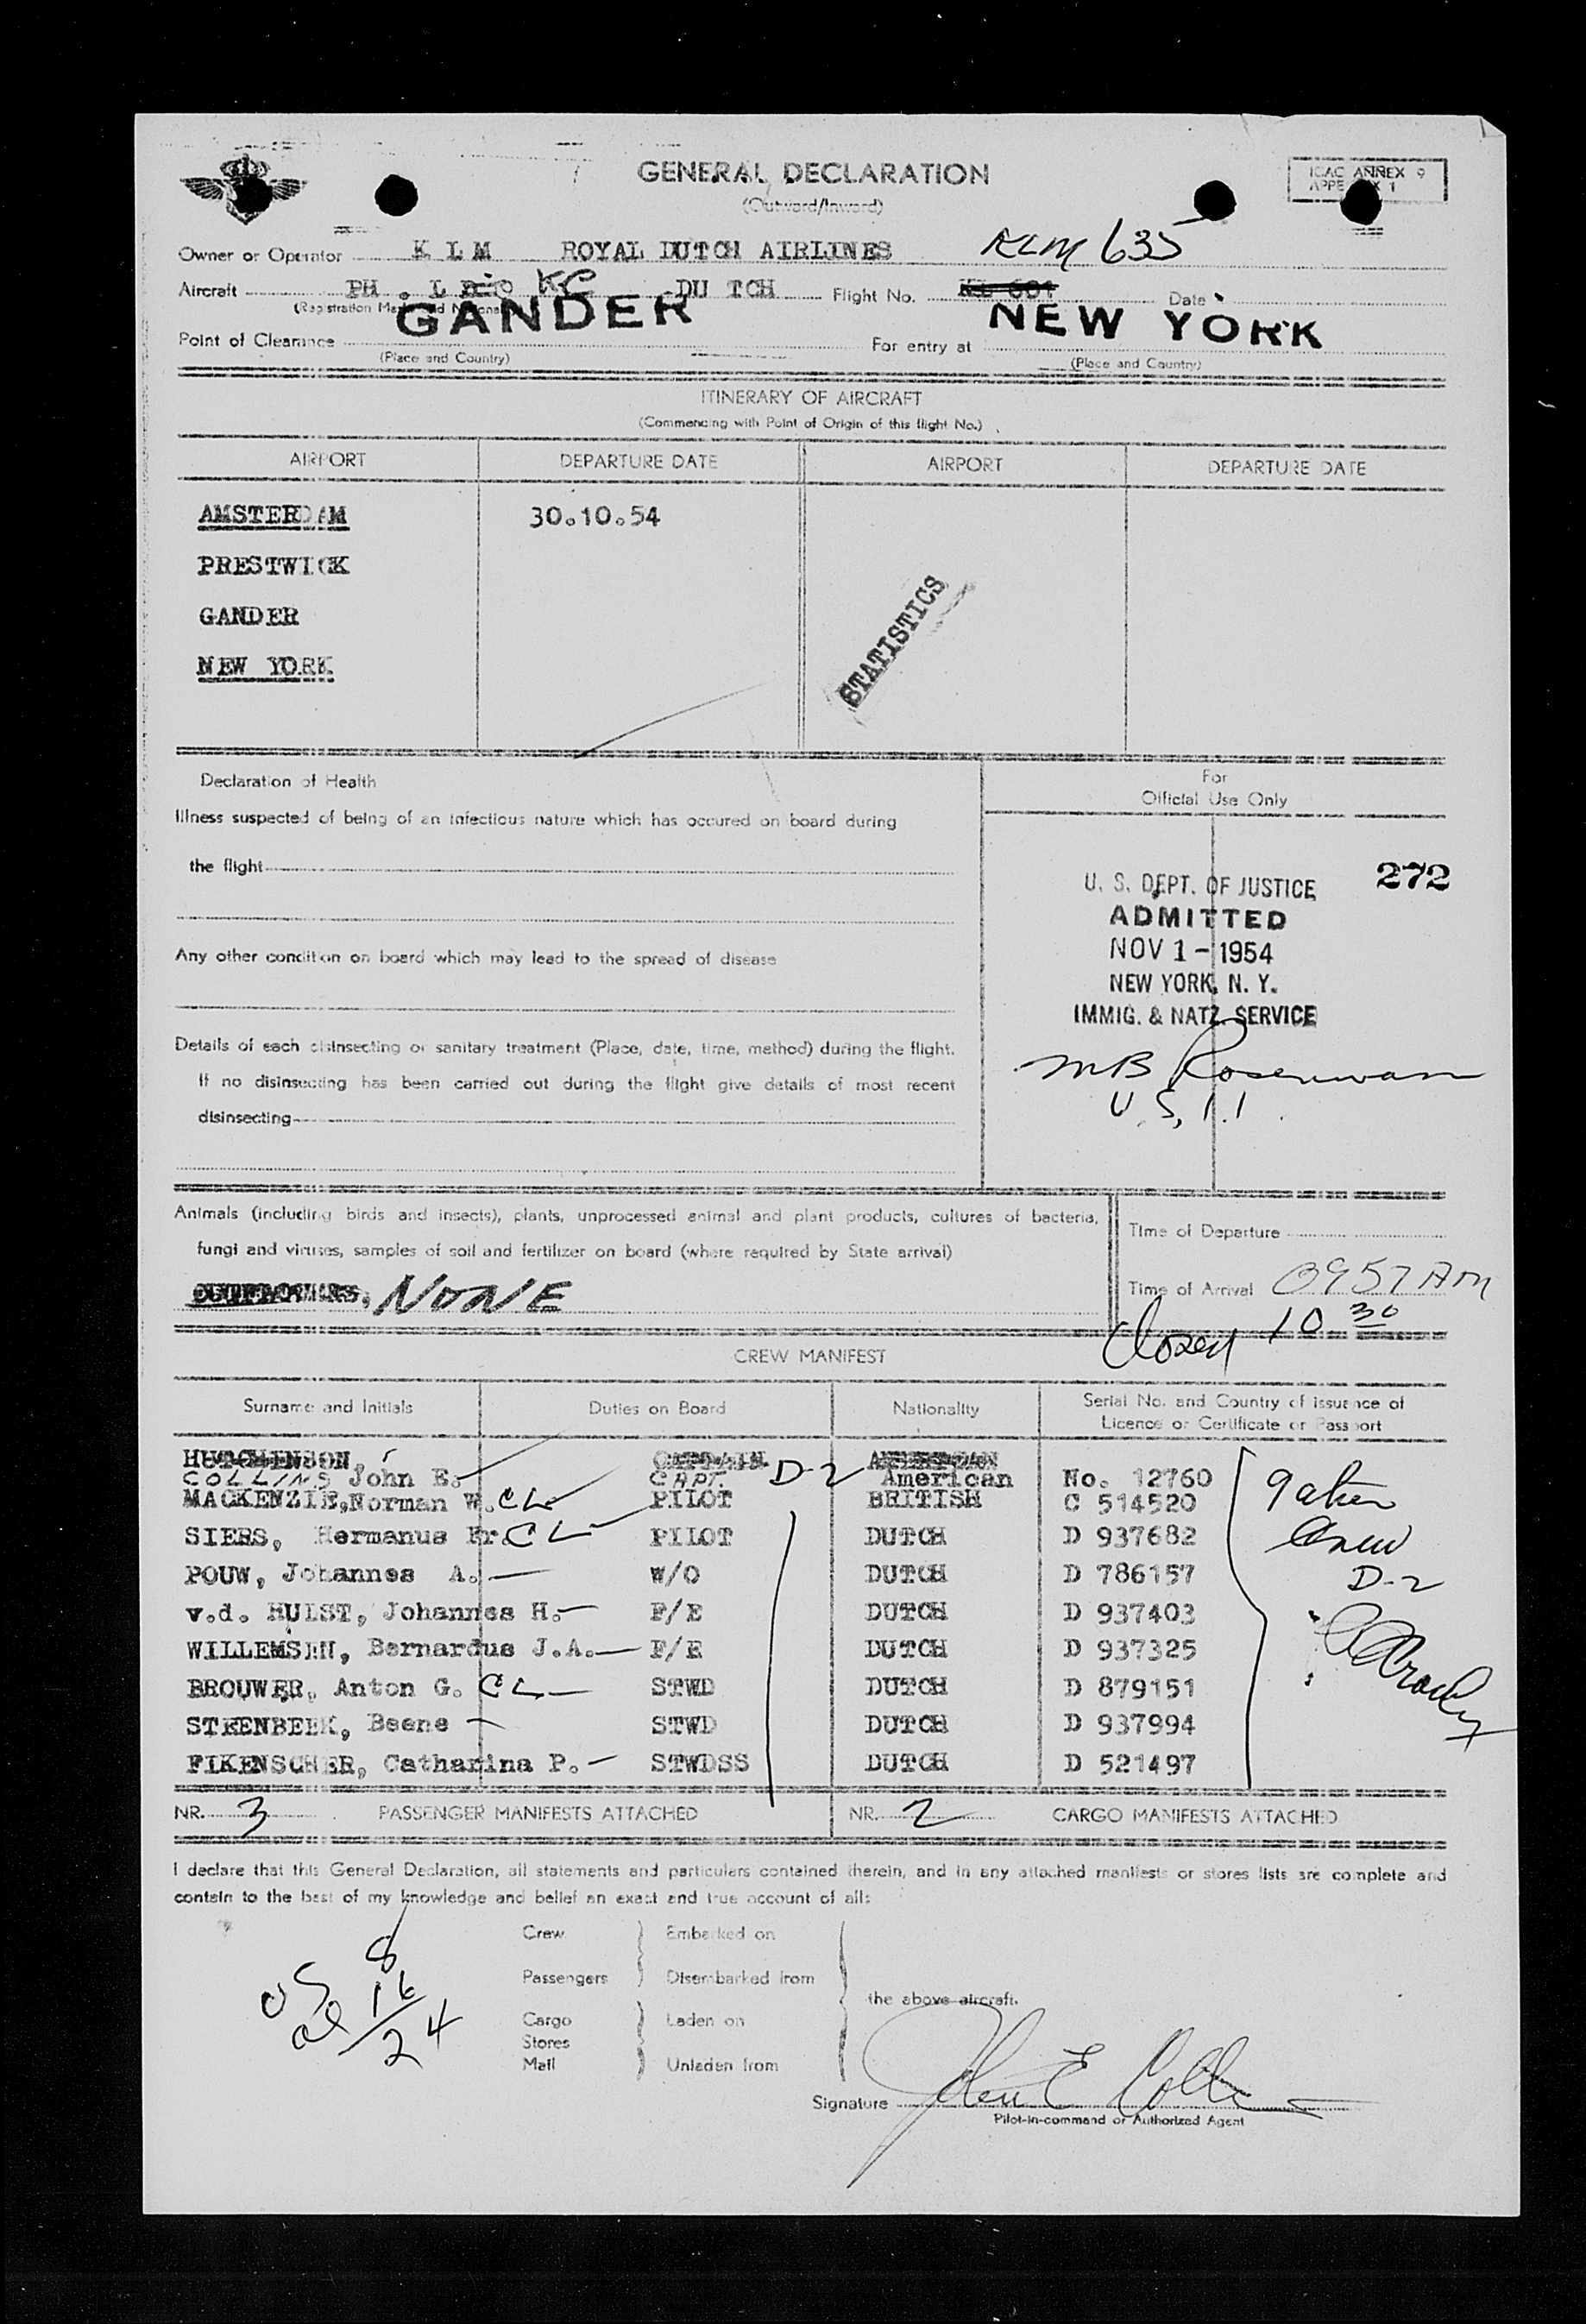 GENERAL DECLARATION
(Outward/Inward)
ICAC ANNEX 9
Owner or Operator K L M ROYAL DUTCH AIRLINES KLM 635
Aircraft PH . L KC DU TCH Flight No. Date
GANDER NEW YORK
Point of Clearance For entry at
(Place and Country) (Place and Country)
ITINERARY OF AIRCRAFT
(Commencing with Point of Origin of this flight No.)
AIRPORT DEPARTURE DATE AIRPORT DEPARTURE DATE
AMSTERDAM 30.10.54
PRESTWICK
GANDER
NEW YORK
STATISTICS
Declaration of Health
For
Official Use Only
Illness suspected of being of an infectious nature which has occured on board during
the flight
272
U. S. DEPT. OF JUSTICE
ADMITTED
NOV 1 - 1954
NEW YORK, N. Y.
IMMIG. & NATZ. SERVICE
Any other condition on board which may lead to the spread of disease
Details of each disinsecting or sanitary treatment (Place, date, time, method) during the flight.
If no disinsecting has been carried out during the flight give details of most recent
disinsecting
MB
U.S.I.I
Animals (including birds and insects), plants, unprocessed animal and plant products, cultures of bacteria,
fungi and viruses, samples of soil and fertilizer on board (where required by State arrival)
NONE
Time of Departure
Time of Arrival 0957 Am
Closed 10 30
CREW MANIFEST
Surname and Initials Duties on Board Nationality Serial No. and Country of issuance of
Licence or Certificate or Passport
HUTCHINSON, CAPTAIN AMERICAN
COLLINS John E. CAPT. D-2 American No. 12760
MACKENZIE, Norman W. CL PILOT BRITISH C 514520
SIEBS, Hermanus Fr. CL PILOT DUTCH D 937682
POUW, Johannes A. W/O DUTCH D 786157
v.d. HULST, Johannes H. F/E DUTCH D 937403
WILLEMSEN, Bernardus J.A. F/E DUTCH D 937325
BROUWER, Anton G. CL STWD DUTCH D 879151
STEENBEEK, Beene STWD DUTCH D 937994
FIKENSCHER, Catharina P. STWDSS DUTCH D 521497
9 alien
Crew
D-2
NR. 3 PASSENGER MANIFESTS ATTACHED NR. 2 CARGO MANIFESTS ATTACHED
I declare that this General Declaration, all statements and particulars contained therein, and in any attached manifests or stores lists are complete and
contain to the best of my knowledge and belief an exact and true account of all:
Crew Embarked on
Passengers Disembarked from
the above aircraft.
Cargo Laden on
Stores
Mail Unladen from
US 8
al 16
24
Signature John E Colli
Pilot-in-command or Authorized Agent